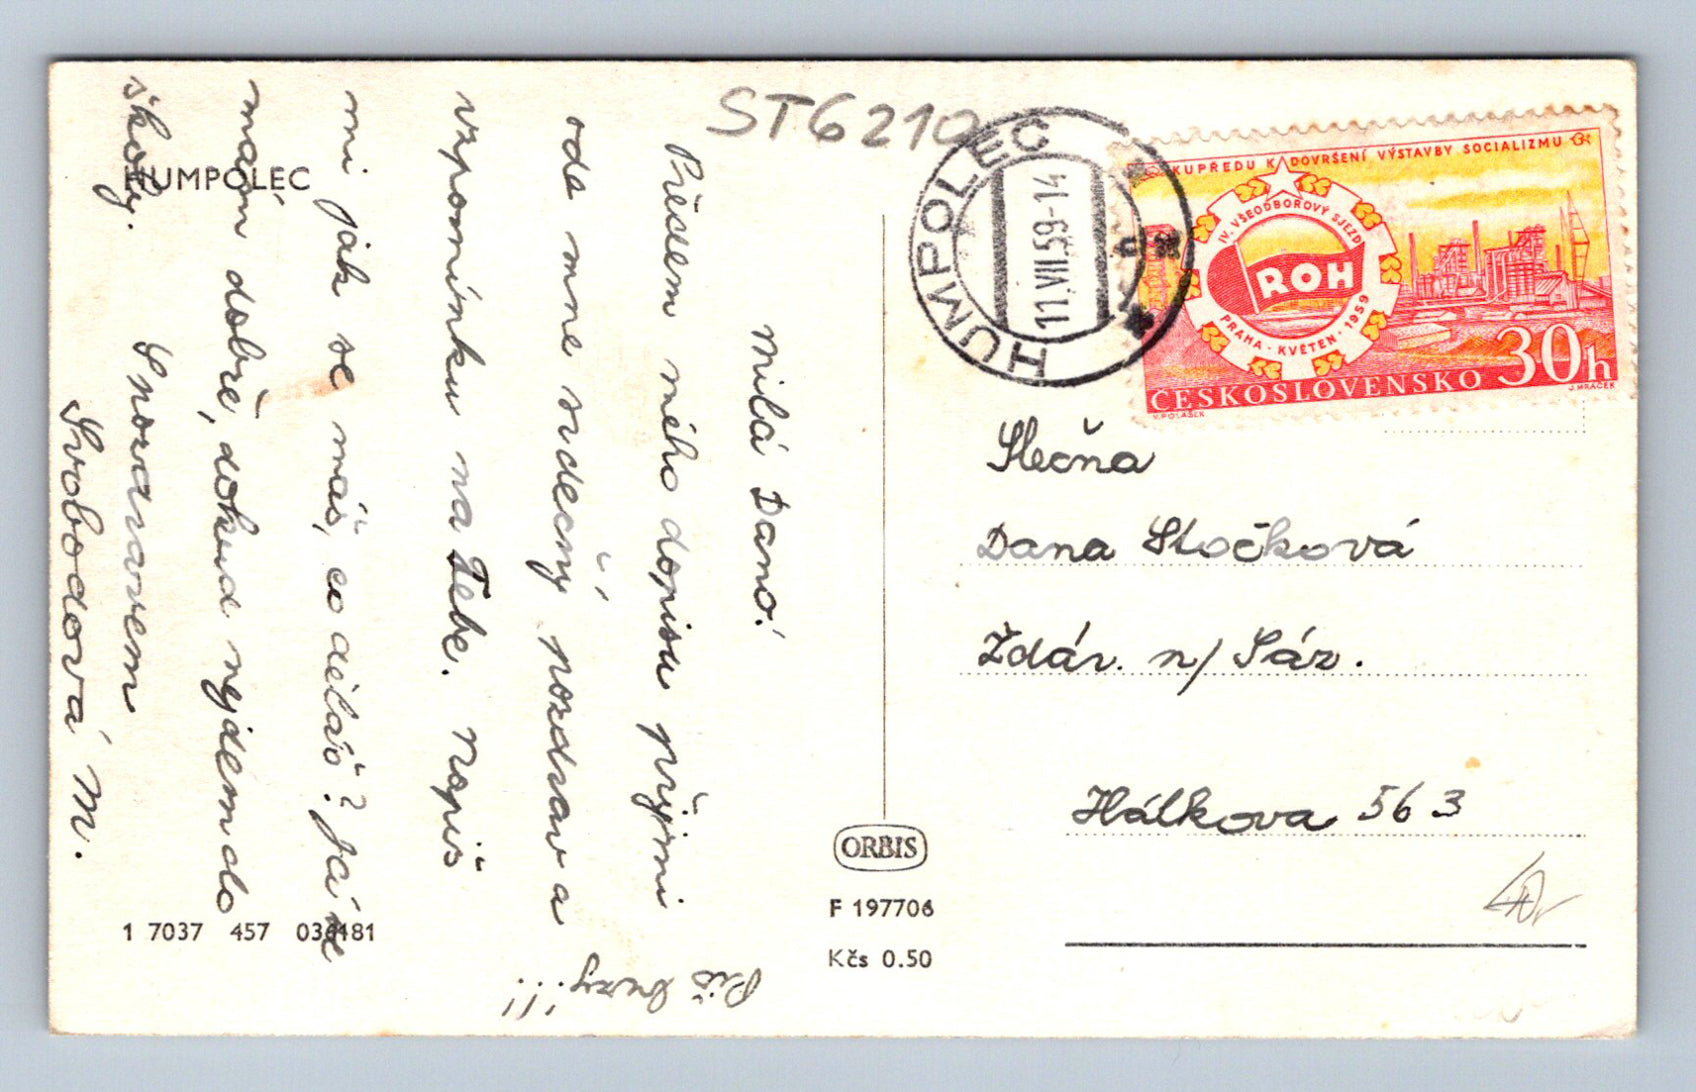 ST6210
HUMPOLEC
Milá Dano!
Předem mého dopisu přijmi
ode mne srdečný pozdrav a
vzpomínku na Tebe. Napiš
mi jak se máš, co děláš? Já se
mám dobře, dokud nejdem do
školy.
Spozdravem
Svobodová M.
Piš brzy!!!
1 7037 457 036181
ORBIS
F 197706
Kčs 0.50
HUMPOLEC
11.VII.59-14
KUPŘEDU K DOVRŠENÍ VÝSTAVBY SOCIALIZMU
IV. VŠEODBOROVÝ SJEZD
ROH
PRAHA - KVĚTEN - 1959
30h
ČESKOSLOVENSKO
V. POLAŠEK
J. MRÁČEK
Slečna
Dana Stočková
Ždár. n/Sáz.
Hálkova 563